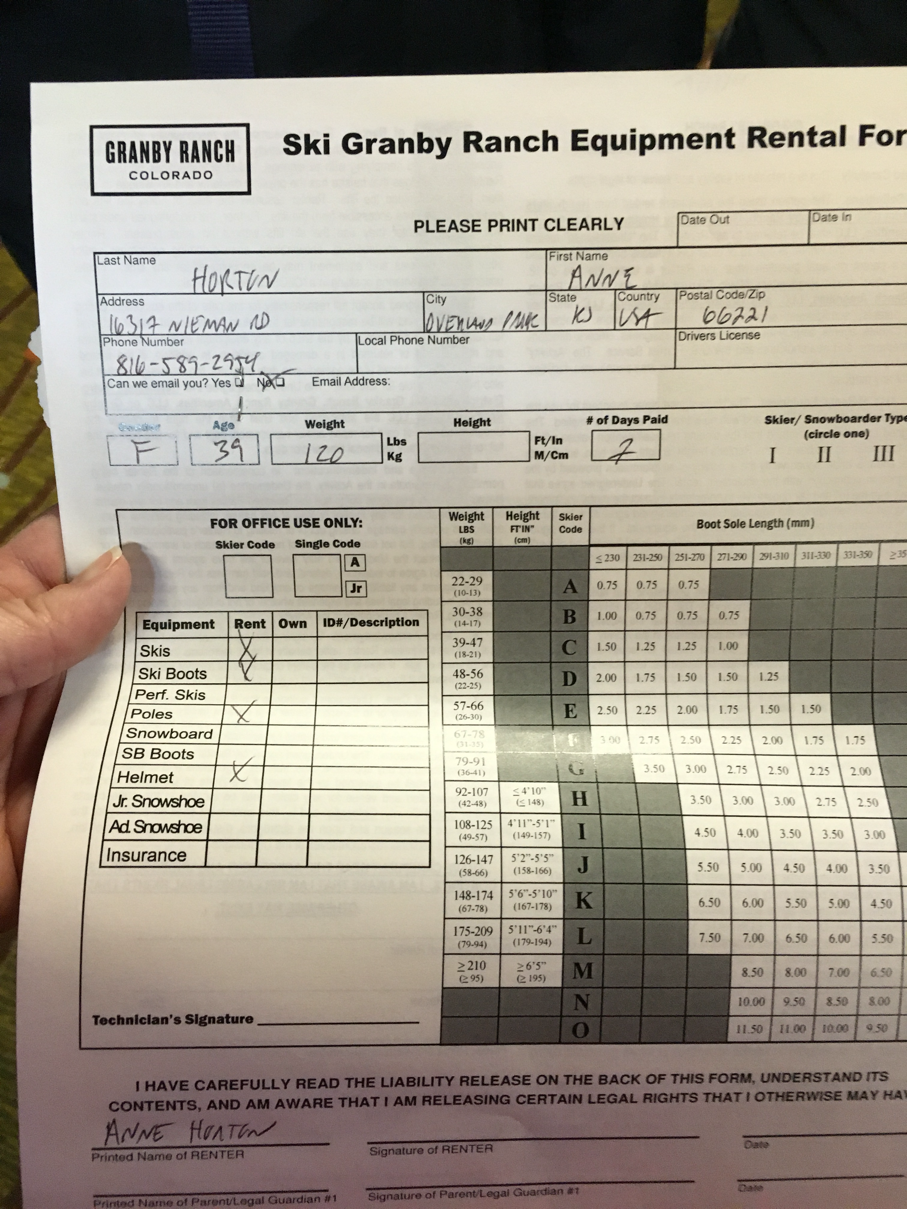 GRANBY RANCH
COLORADO
Ski Granby Ranch Equipment Rental For
PLEASE PRINT CLEARLY
Date Out Date In
Last Name First Name
HORTON ANNE
Address City State Country Postal Code/Zip
16317 NIEMAN RD OVERLAND PARK KS USA 66221
Phone Number Local Phone Number Drivers License
816-589-2954
Can we email you? Yes No Email Address:
Age Weight Height # of Days Paid Skier/ Snowboarder Type
(circle one)
F 39 120 Lbs Kg Ft/In M/Cm 2 I II III
FOR OFFICE USE ONLY:
Skier Code Single Code
A
Jr
Equipment Rent Own ID#/Description
Skis X
Ski Boots X
Perf. Skis
Poles X
Snowboard
SB Boots
Helmet X
Jr. Snowshoe
Ad. Snowshoe
Insurance
Technician's Signature
Weight LBS (kg) Height FT'IN" (cm) Skier Code Boot Sole Length (mm)
≤ 230 231-250 251-270 271-290 291-310 311-330 331-350 ≥35
22-29 (10-13) A 0.75 0.75 0.75
30-38 (14-17) B 1.00 0.75 0.75 0.75
39-47 (18-21) C 1.50 1.25 1.25 1.00
48-56 (22-25) D 2.00 1.75 1.50 1.50 1.25
57-66 (26-30) E 2.50 2.25 2.00 1.75 1.50 1.50
67-78 (31-35) F 3.00 2.75 2.50 2.25 2.00 1.75 1.75
79-91 (36-41) G 3.50 3.00 2.75 2.50 2.25 2.00
92-107 (42-48) ≤ 4'10" (≤ 148) H 3.50 3.00 3.00 2.75 2.50
108-125 (49-57) 4'11"-5'1" (149-157) I 4.50 4.00 3.50 3.50 3.00
126-147 (58-66) 5'2"-5'5" (158-166) J 5.50 5.00 4.50 4.00 3.50
148-174 (67-78) 5'6"-5'10" (167-178) K 6.50 6.00 5.50 5.00 4.50
175-209 (79-94) 5'11"-6'4" (179-194) L 7.50 7.00 6.50 6.00 5.50
≥ 210 (≥ 95) ≥ 6'5" (≥ 195) M 8.50 8.00 7.00 6.50
N 10.00 9.50 8.50 8.00
O 11.50 11.00 10.00 9.50
I HAVE CAREFULLY READ THE LIABILITY RELEASE ON THE BACK OF THIS FORM, UNDERSTAND ITS
CONTENTS, AND AM AWARE THAT I AM RELEASING CERTAIN LEGAL RIGHTS THAT I OTHERWISE MAY HAV
ANNE HORTON
Printed Name of RENTER Signature of RENTER Date
Printed Name of Parent/Legal Guardian #1 Signature of Parent/Legal Guardian #1 Date